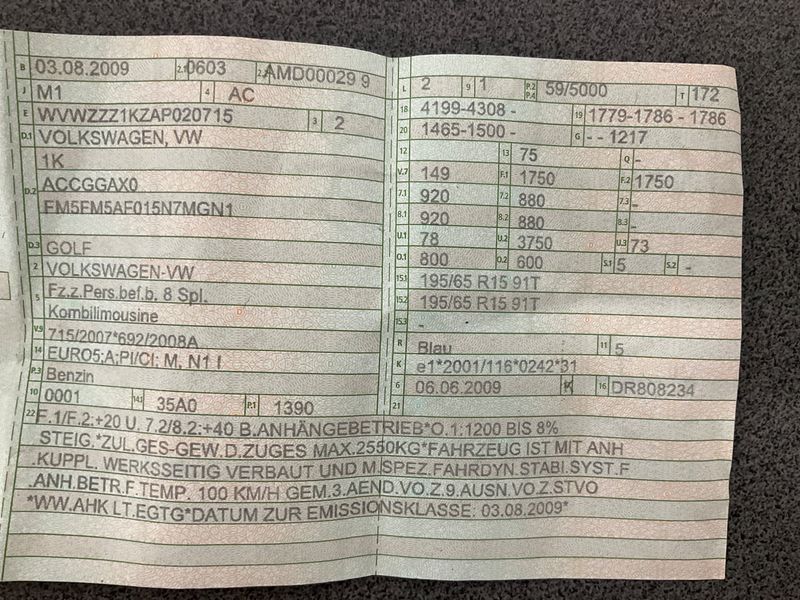 B 03.08.2009 2.1 0603 2.2 AMD00029 9
J M1 4 AC
E WVWZZZ1KZAP020715 3 2
D.1 VOLKSWAGEN, VW
1K
D.2 ACCGGAX0
FM5FM5AF015N7MGN1
D.3 GOLF
2 VOLKSWAGEN-VW
5 Fz.z.Pers.bef.b. 8 Spl.
Kombilimousine
V.9 715/2007*692/2008A
14 EURO5;A;PI/CI; M, N1 I
P.3 Benzin
10 0001 14.1 35A0 P.1 1390
L 2 9 1 P.2 P.4 59/5000 T 172
18 4199-4308 - 19 1779-1786 - 1786
20 1465-1500 - G - - 1217
12 13 75 Q -
V.7 149 F.1 1750 F.2 1750
7.1 920 7.2 880 7.3 -
8.1 920 8.2 880 8.3 -
U.1 78 U.2 3750 U.3 73
O.1 800 O.2 600 S.1 5 S.2 -
15.1 195/65 R15 91T
15.2 195/65 R15 91T
15.3 -
R Blau 11 5
K e1*2001/116*0242*31
6 06.06.2009 17 K 16 DR808234
21
22 F.1/F.2:+20 U. 7.2/8.2:+40 B.ANHÄNGEBETRIEB*O.1:1200 BIS 8%
STEIG.*ZUL.GES-GEW.D.ZUGES MAX.2550KG*FAHRZEUG IST MIT ANH
.KUPPL. WERKSSEITIG VERBAUT UND M.SPEZ.FAHRDYN.STABI.SYST.F
.ANH.BETR.F.TEMP. 100 KM/H GEM.3.AEND.VO.Z.9.AUSN.VO.Z.STVO
*WW.AHK LT.EGTG*DATUM ZUR EMISSIONSKLASSE: 03.08.2009*